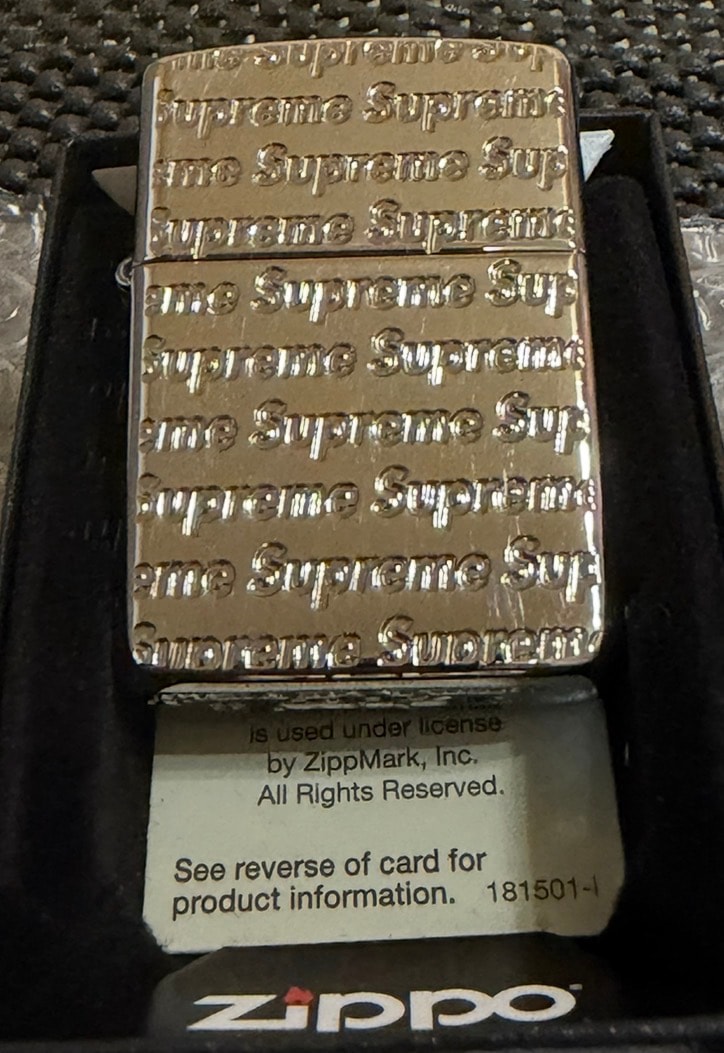 me Supreme Sup
Supreme Supreme
eme Supreme Sup
Supreme Supreme
eme Supreme Sup
Supreme Supreme
eme Supreme Sup
Supreme Supreme
eme Supreme Sup
Supreme Supreme
is used under license
by ZippMark, Inc.
All Rights Reserved.
See reverse of card for
product information. 181501-I
zippo